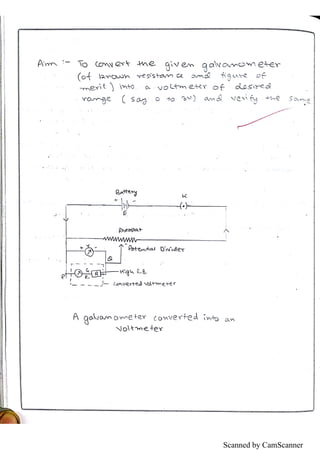 Aim :- To convert the given galvanometer
(of known resistance and figure of
merit) into a voltmeter of desired
range (say 0 to 3V) and verify the same
Battery
K
E
Rheostat
Potential Divider
High R.B
Converted voltmeter
A galvanometer converted into an
voltmeter
Scanned by CamScanner